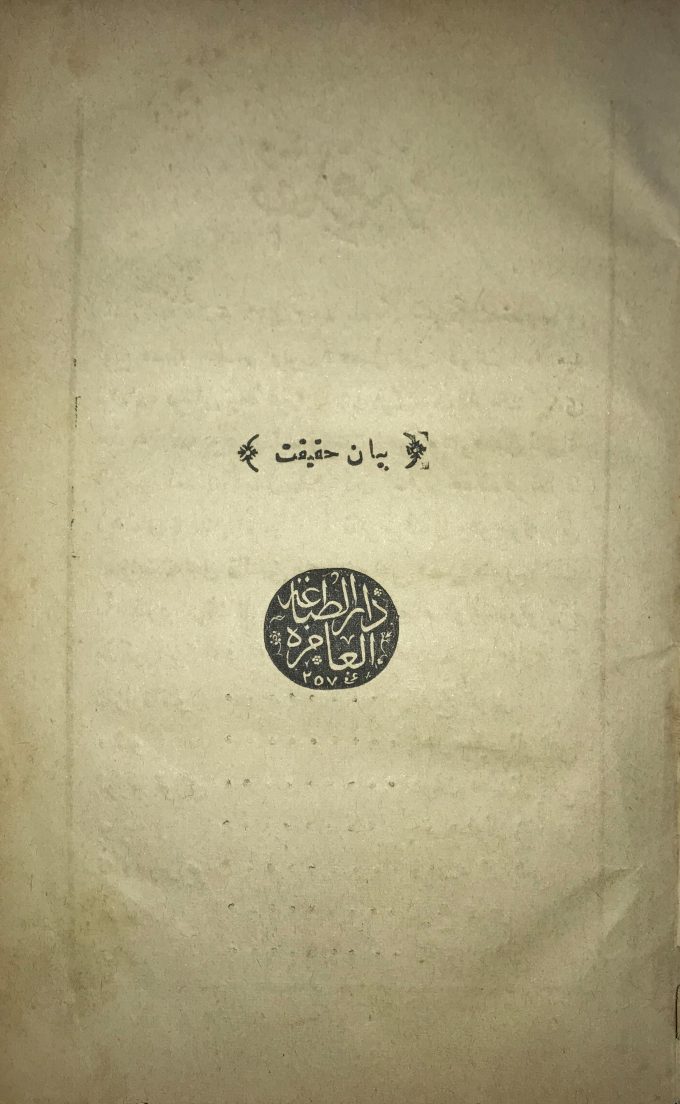 بیان حقیقت
دار الطباعة
العامره
٢٥٧